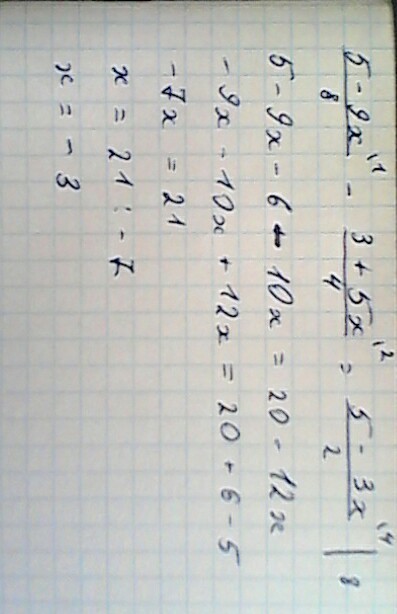 5 - 9x \1 / 8 - 3 + 5x \2 / 4 = 5 - 3x \4 / 2 | 8
5 - 9x - 6 - 10x = 20 - 12x
- 9x - 10x + 12x = 20 + 6 - 5
- 7x = 21
x = 21 : - 7
x = - 3